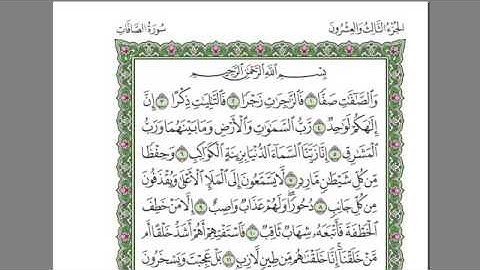 الجزء الثالث والعشرون
سورة الصافات
بِسْمِ اللَّهِ الرَّحْمَٰنِ الرَّحِيمِ
وَالصَّافَّاتِ صَفًّا ١ فَالزَّاجِرَاتِ زَجْرًا ٢ فَالتَّالِيَاتِ ذِكْرًا ٣ إِنَّ
إِلَٰهَكُمْ لَوَاحِدٌ ٤ رَّبُّ السَّمَاوَاتِ وَالْأَرْضِ وَمَا بَيْنَهُمَا وَرَبُّ
الْمَشَارِقِ ٥ إِنَّا زَيَّنَّا السَّمَاءَ الدُّنْيَا بِزِينَةٍ الْكَوَاكِبِ ٦ وَحِفْظًا
مِّن كُلِّ شَيْطَانٍ مَّارِدٍ ٧ لَّا يَسَّمَّعُونَ إِلَى الْمَلَإِ الْأَعْلَىٰ وَيُقْذَفُونَ
مِن كُلِّ جَانِبٍ ٨ دُحُورًا وَلَهُمْ عَذَابٌ وَاصِبٌ ٩ إِلَّا مَنْ خَطِفَ
الْخَطْفَةَ فَأَتْبَعَهُ شِهَابٌ ثَاقِبٌ ١٠ فَاسْتَفْتِهِمْ أَهُمْ أَشَدُّ خَلْقًا أَم
مَّنْ خَلَقْنَا إِنَّا خَلَقْنَاهُم مِّن طِينٍ لَّازِبٍ ١١ بَلْ عَجِبْتَ وَيَسْخَرُونَ